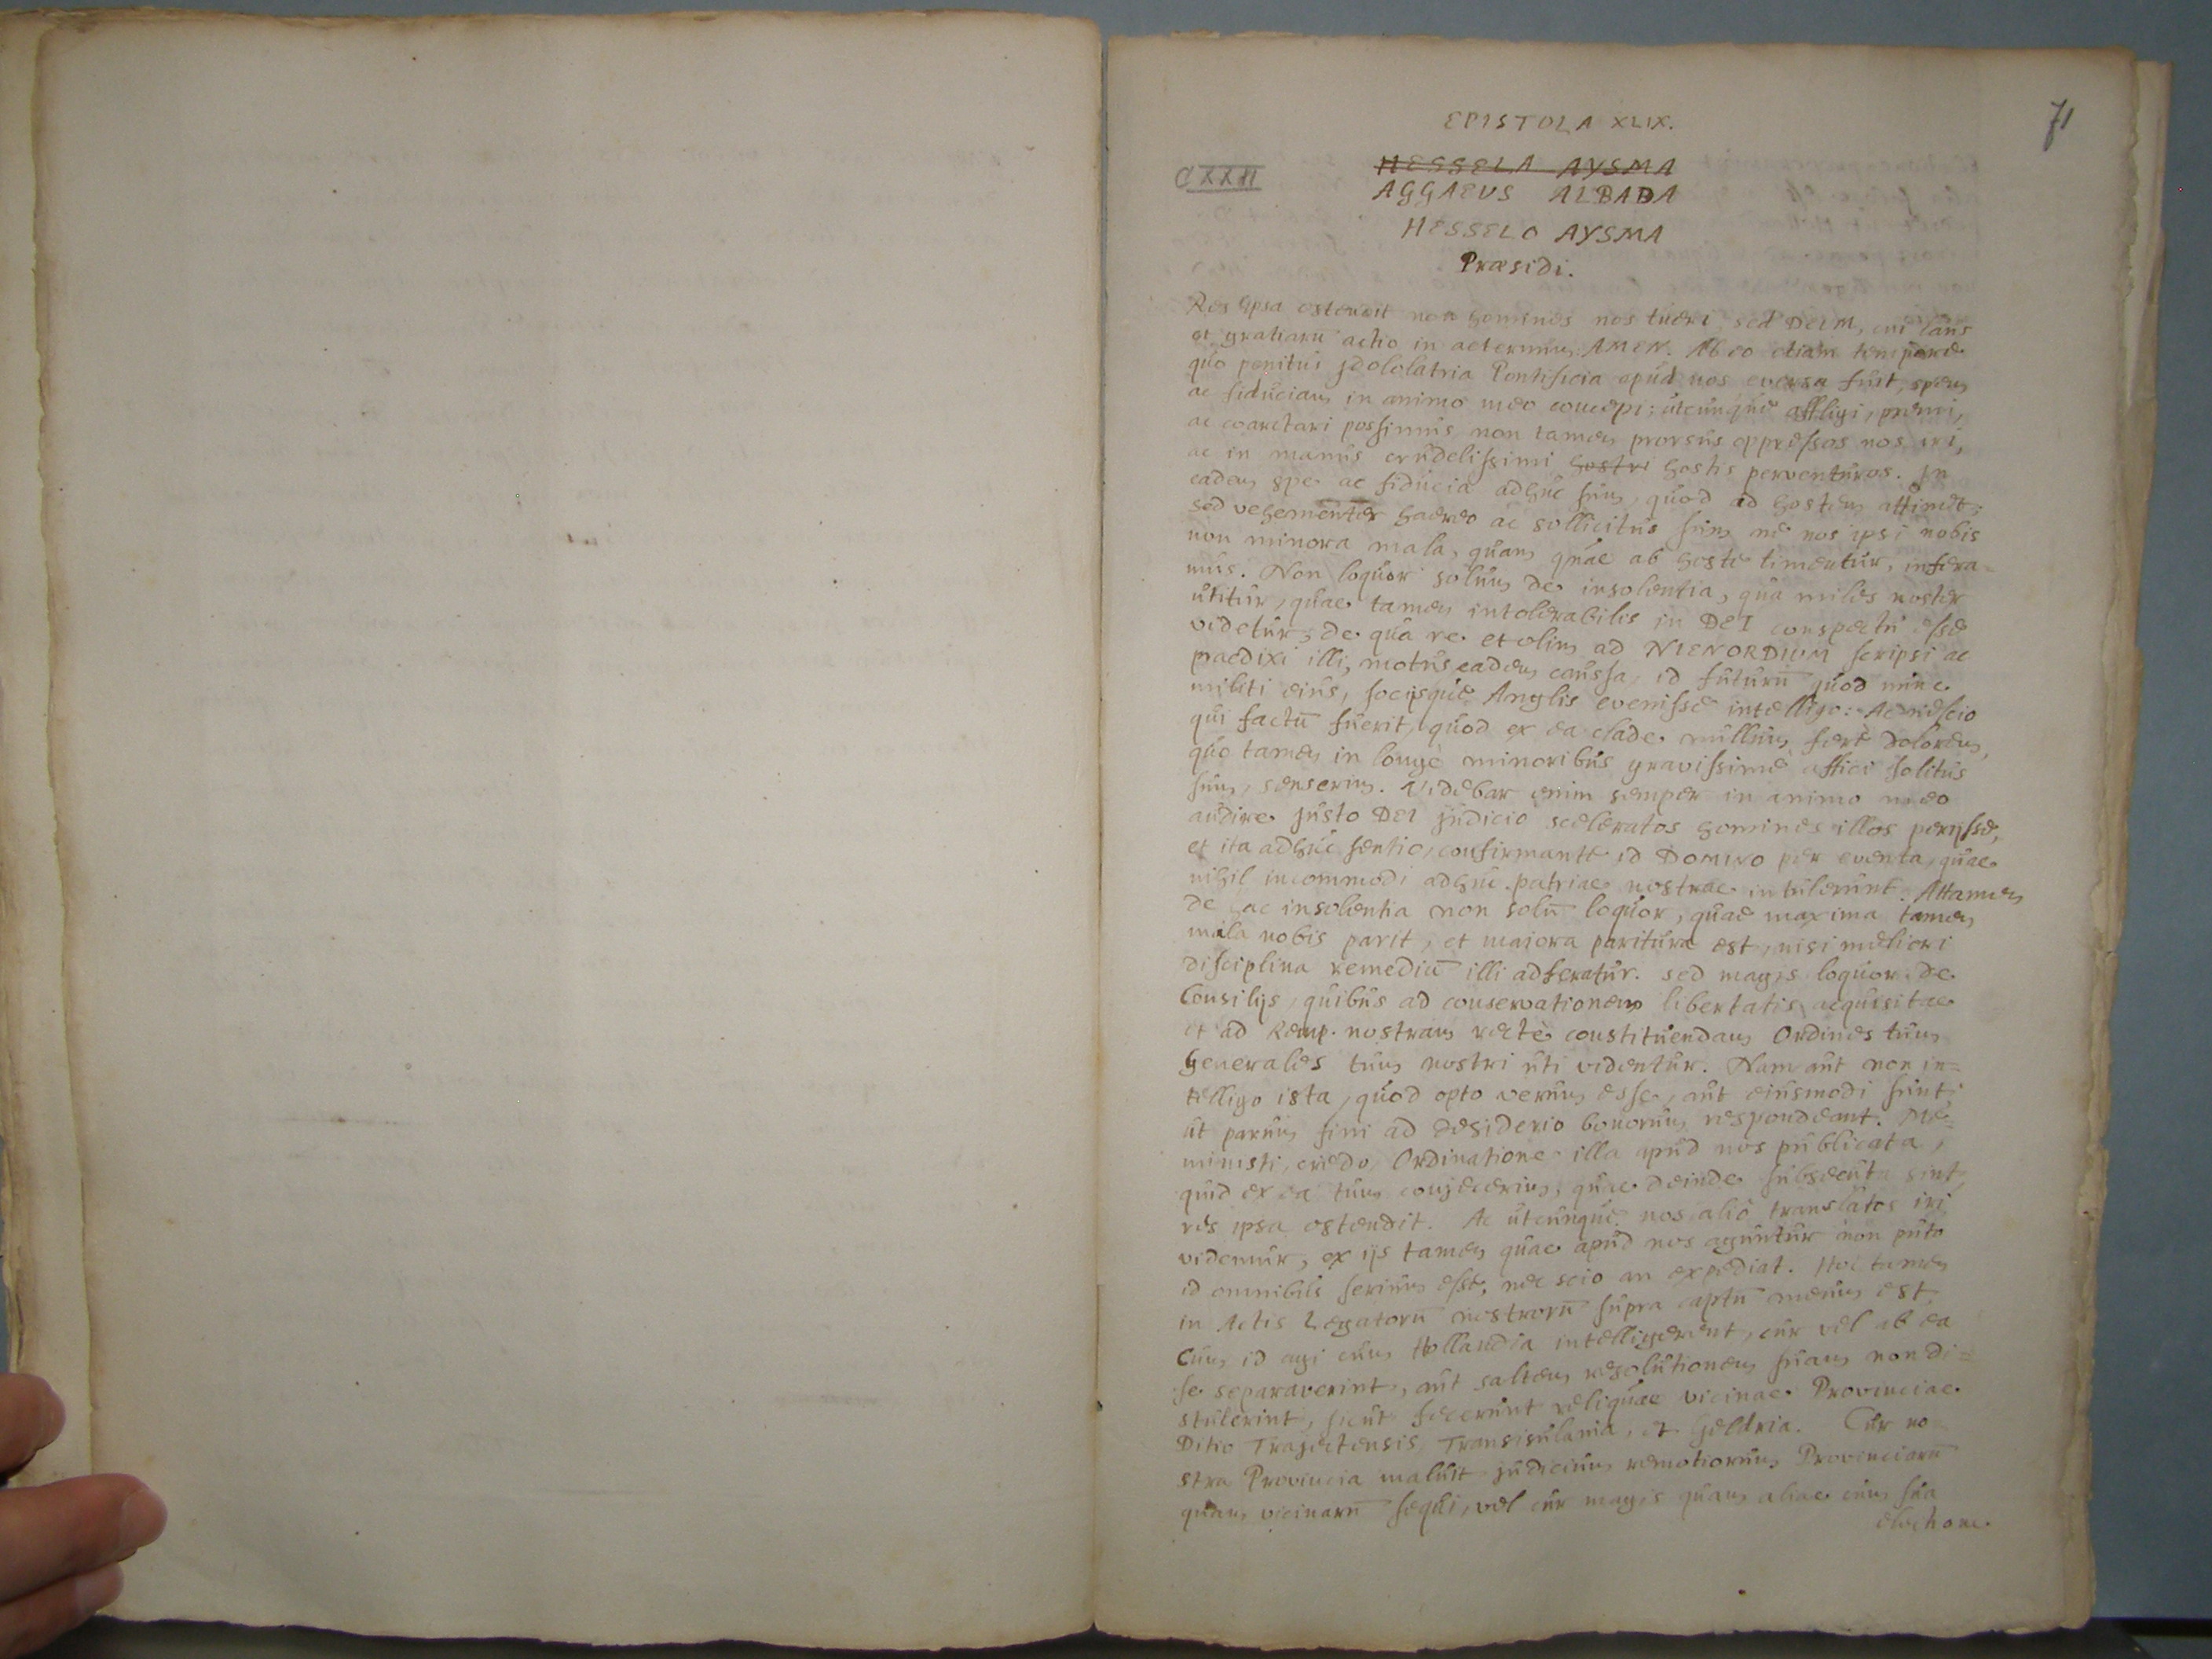 71
EPISTOLA XLIX.
CXXII
HESSELA AYSMA
AGGAEUS ALBADA
HESSELO AYSMA
Præsidi.
Res ipsa ostendit non homines nos tueri sed DEUM, cui laus
et gratiarū actio in aeternum AMEN. Ab eo etiam tempore
quo penitus jdololatria Pontificia apud nos eversa fuit, spem
ac fiduciam in animo meo concepi; utcunque affligi, premi,
ac coarctari possimus non tamen prorsus oppressos nos iri,
ac in manus crudelissimi hostri hostis perventuros. In
eadem spe ac fiducia adhuc sum, quod ad hostem attinet;
sed vehementer haereo ac sollicitus sum ne nos ipsi nobis
non minora mala, quam quae ab hoste timentur, infera-
mus. Non loquor solum de insolentia, qua miles noster
utitur, quae tamen intolerabilis in DEI conspectu esse
videtur; de qua re et olim ad NIENORDIUM scripsi ac
praedixi illi, motus eadem caussa, id futurū quod nunc
militi eius, socijsque Anglis evenisse intelligo: Ac nescio
qui factū fuerit, quod ex ea clade nullum ferè dolorem,
quo tamen in longè minoribus gravissime affici solitus
sum, senserim. Videbar enim semper in animo meo
audire justo DEI judicio sceleratos homines illos perijsse,
et ita adhuc sentio, confirmante id DOMINO per eventa, quae
nihil incommodi adhuc patriae nostrae intulerunt. Attamen
de hac insolentia non solū loquor, quae maxima tamen
mala nobis parit, et maiora paritura est, nisi meliori
disciplina remediū illi adferatur. sed magis loquor de
Consilijs, quibus ad conservationem libertatis acquisitae
et ad Remp. nostram rectè constituendam Ordines tum
Generales tum nostri uti videntur. Nam aut non in=
telligo ista, quod opto verum esse, aut eiusmodi sunt,
ut parum fini ad desiderio bonorum respondeant. Me=
ministi, credo, Ordinatione illa apud nos publicata,
quid ex ea tum conjecerim; quae deinde subsecuta sint,
res ipsa ostendit. Ac utcunque nos alio translatos iri
videmur, ex ijs tamen quae apud nos aguntur non puto
id omnibus serium esse, nec scio an expediat. Hoc tamen
in Actis Legatorū nostrorū supra captū meum est,
Cum id agi cum Hollandia intelligerent, cur vel ab ea
se separaverint, aut saltem resolutionem suam non di=
stulerint, sicut fecerunt reliquae vicinae Provinciae
Ditio Trajectensis, Transisulania, et Geldria. Cur no
stra Provincia maluit judicium remotiorum Provinciarū
quam vicinarū sequi, vel cur magis quam aliae cum sua
electione